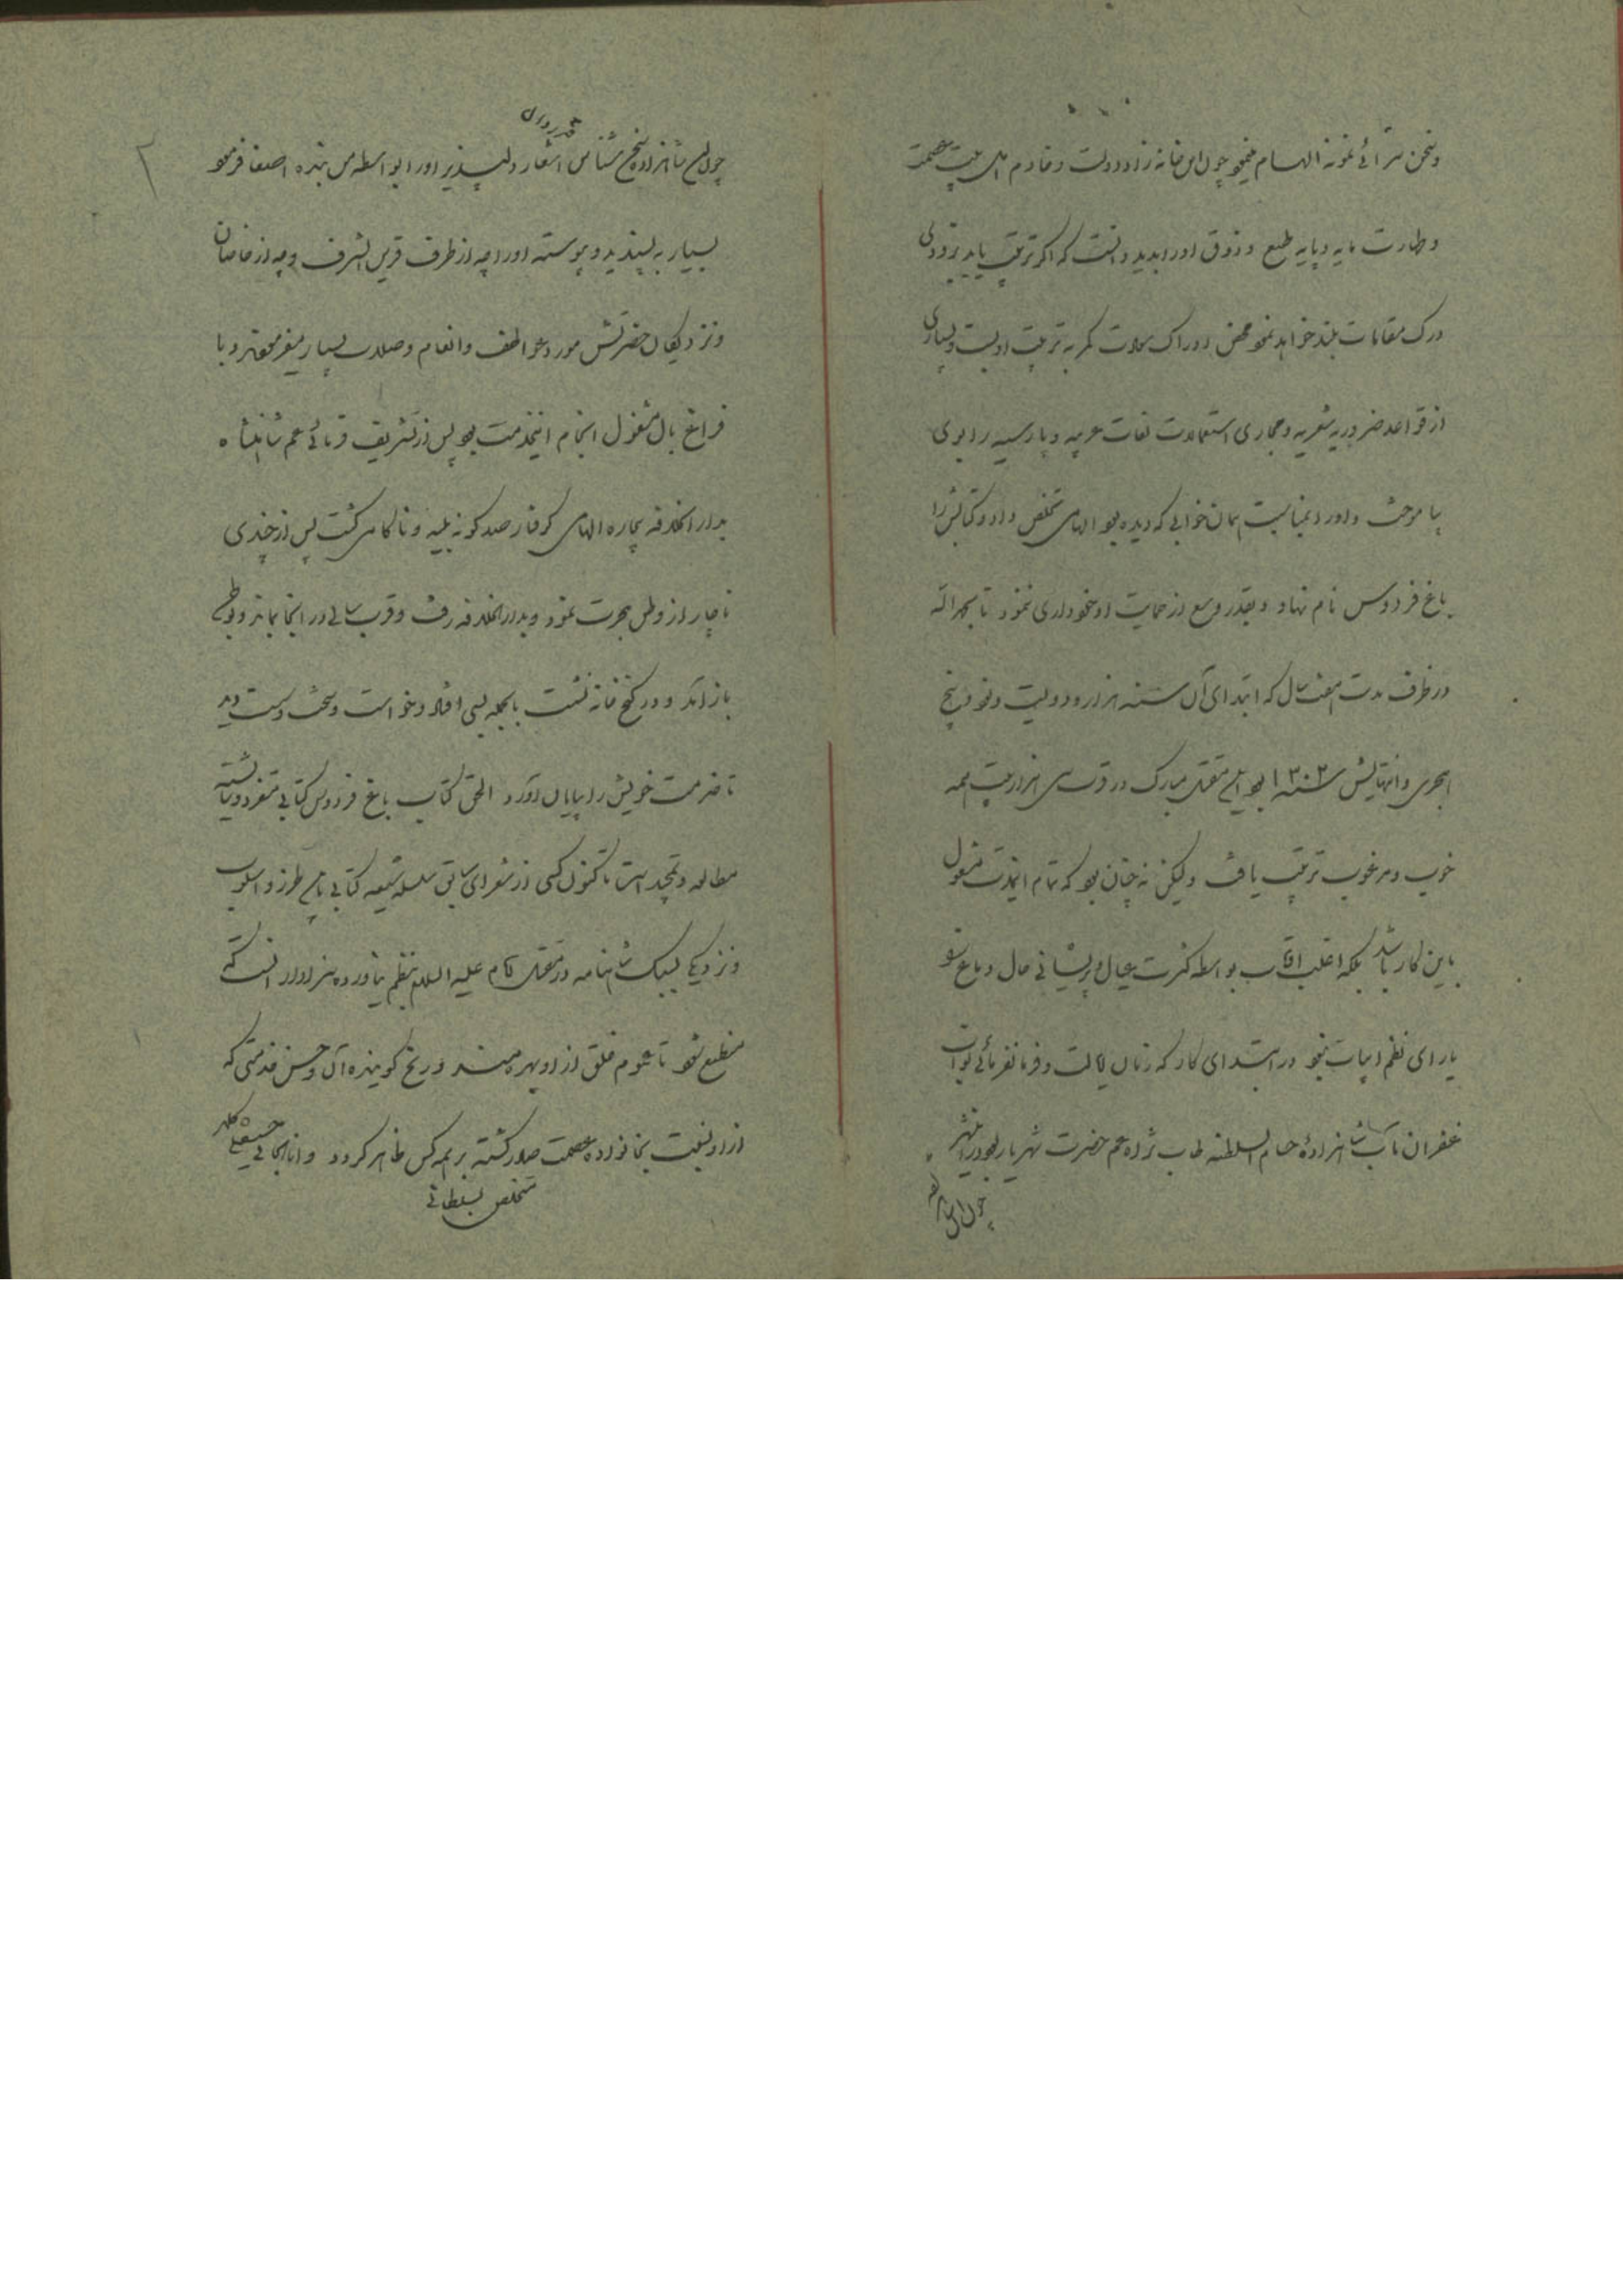 وسخن سرائی نمونهٔ الهام میجو چون این خانه زاد دولت و خادم اهل بیت عصمت
و طهارت مایه و پایه طبع و ذوق اورا بدید دانست که اگر تربیت یابد بزودی
درک مقامات بلند خواهد نمود محض ادراک کمر به تربیت او بست و بسیاری
از قواعد ضروریه شعریه و مجاری استعمالات لغات عربیه و پارسیه را بوی
بیاموخت و اورا بمناسبت همان خوابی که دیده بود الهامی تخلص داد و کتابش را
باغ فردوس نام نهاد و بقدر وسع از حمایت او خودداری ننمود تا بحمدالله
در ظرف مدت هفت سال که ابتدای آن سنه هزار و دویست و نود و پنج
هجری و انتهایش سنه ۱۳۰۲ بود این مقتل مبارک در قرب سی هزار بیت همه
خوب و مرغوب ترتیب یافت ولیکن نه چنان بود که تمام اینمدت مشغول
باین کار باشد بلکه اغلب اوقات بواسطه کثرت عیال و پریشانی حال و دماغ
یارای نظم ابیات نبود در ابتدای کار که زمان ایالت و فرمانفرمائی نواب
غفران مآب شاهزادهٔ حسام السلطنه طاب ثراه عم حضرت شهریار بود
چون این
قدردان
چون این شاهزاده سخن شناس اشعار دلپذیر اورا بواسطه من بنده اصغا فرمود
بسیار به پسندید و پیوسته اورا چه از طرف قرین الشرف و چه از خاصان
و نزدیکان حضرتش مورد عواطف و انعام و صلات بسیار میفرمود و با
فراغ بال مشغول انجام اینخدمت بود پس از تشریف فرمائی عم شاهنشاه
بدارالخلافه بیچاره الهامی گرفتار صد گونه بلیه و ناکامی گشت پس از چندی
ناچار از وطن هجرت نمود و بدارالخلافه رفت و قرب سالی در آنجا بماند و بوطن
باز آمد و در کنج خانه نشست بالجمله بسی افتاد و خواست و سخت و سست دید
تا خدمت خویش را بپایان آورد الحق کتاب باغ فردوس کتابی متفرد و شایسته
مطالعه و تمجید است تا کنون کسی از شعرای سابق سلسله شیعه کتابی باین طرز و اسلوب
و نزدیک بسبک شاهنامه در مقتل امام علیه السلام بنظم نیاورده سزاوار است که
منطبع شود تا عموم خلق از او بهره بینند و رنج گوینده آن و حسن خدمتی که
از او نسبت بخانواده عصمت صادر گشته بر همه کس ظاهر گردد و انا الجانی حسینقلی
متخلص بسلطانی